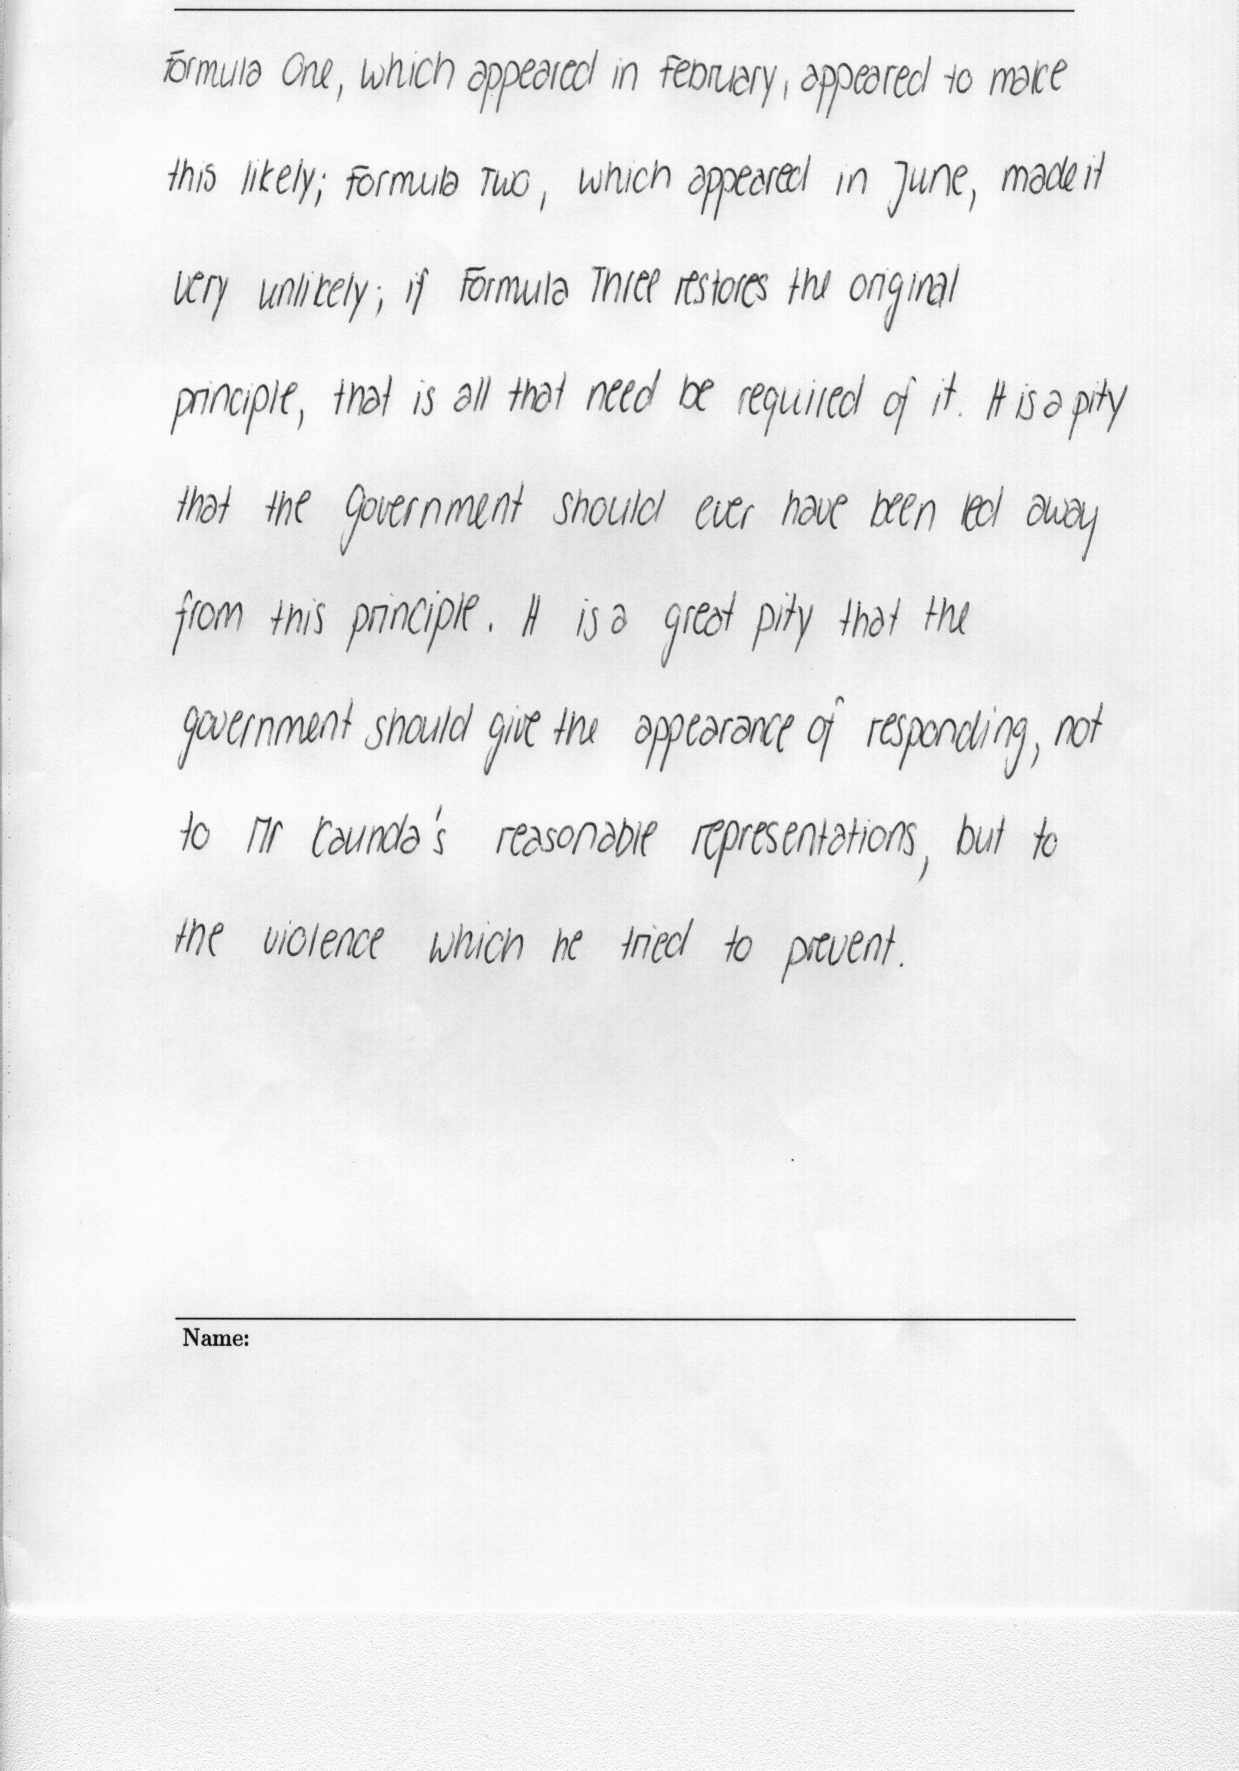 Formula One, which appeared in February, appeared to make
this likely; Formula Two, which appeared in June, made it
very unlikely; if Formula Three restores the original
principle, that is all that need be required of it. It is a pity
that the government should ever have been led away
from this principle. It is a great pity that the
government should give the appearance of responding, not
to Mr Kaunda's reasonable representations, but to
the violence which he tried to prevent.
Name: